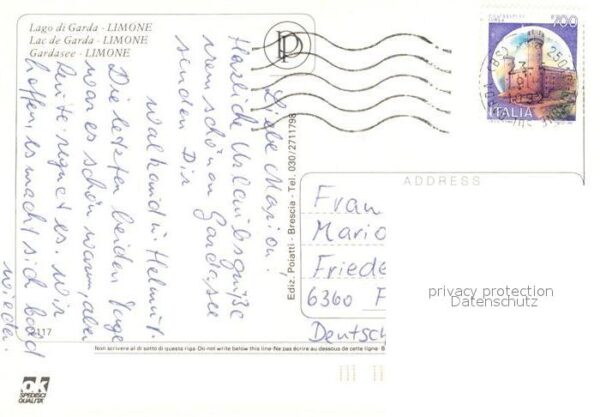 Lago di Garda - LIMONE
Lac de Garda - LIMONE
Gardasee - LIMONE
Liebe Marion!
Herzliche Urlaubsgrüße
vom schönen Gardasee
senden Dir
Waltraud u. Helmut.
Die letzten beiden Tage
war es schön warm, aber
heute regnet es. Wir
hoffen, es macht sich bald
wieder.
117
Ediz. Poiatti - Brescia - Tel. 030/2711798
P
700
ITALIA
ADDRESS
Frau
Mario
Friede
6360 F
Deutsch
privacy protection
Datenschutz
Non scrivere al di sotto di questa riga - Do not write below this line - Ne pas écrire au dessous de cette ligne - B
ok
SPEDISCI
QUALITÀ